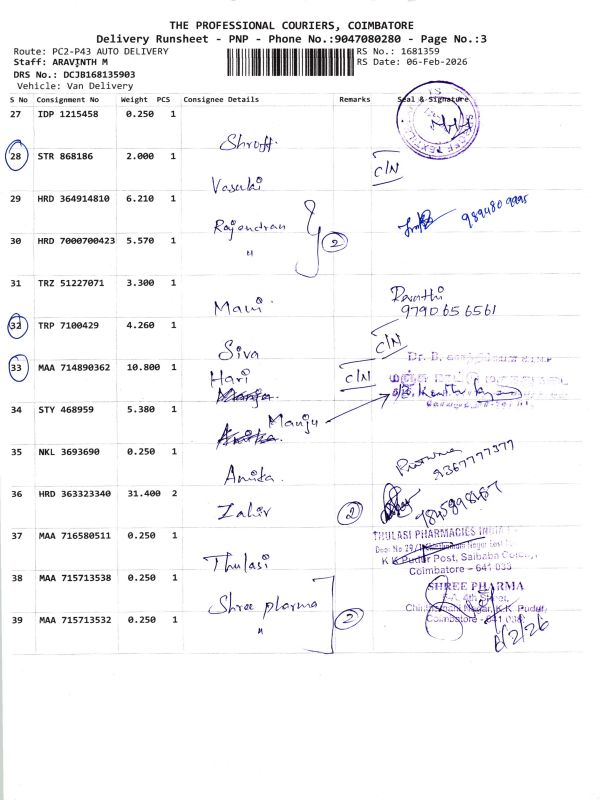 THE PROFESSIONAL COURIERS, COIMBATORE
Delivery Runsheet - PNP - Phone No.:9047080280 - Page No.:3
Route: PC2-P43 AUTO DELIVERY
RS No.: 1681359
Staff: ARAVINTH M
RS Date: 06-Feb-2026
DRS No.: DCJB168135903
Vehicle: Van Delivery
S No Consignment No Weight PCS Consignee Details Remarks Seal & Signature
27 IDP 1215458 0.250 1
Shroff.
28 STR 868186 2.000 1
C/N
Vasuki
29 HRD 364914810 6.210 1
Rajendran 9894809995
30 HRD 7000700423 5.570 1
" 2
31 TRZ 51227071 3.300 1
Mani Revathi
9790656561
32 TRP 7100429 4.260 1
C/N
Siva
33 MAA 714890362 10.800 1
Hari C/N
Dr. B.
34 STY 468959 5.380 1
Manju
35 NKL 3693690 0.250 1
Amika 9367777377
36 HRD 363323340 31.400 2
Zahir 2
37 MAA 716580511 0.250 1
Thulasi
THULASI PHARMACIES INDIA
K K Pudur Post, Saibaba Colony,
Coimbatore - 641 033
38 MAA 715713538 0.250 1
Shree pharma 2
SHREE PHARMA
K.K. Pudur,
Coimbatore - 641 038
39 MAA 715713532 0.250 1
"
6/2/26